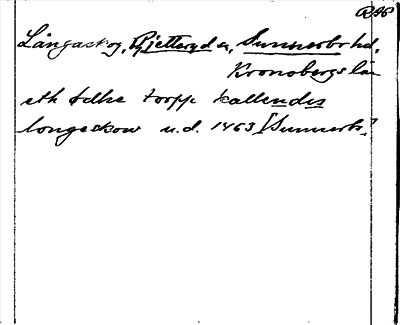 RAP
Långaskog, Pjetteryd sn, Sunnerbo hd,
Kronobergs län
eth ödhe torpp kallendis
longeskow u.d. 1463 [Sunnerb.]